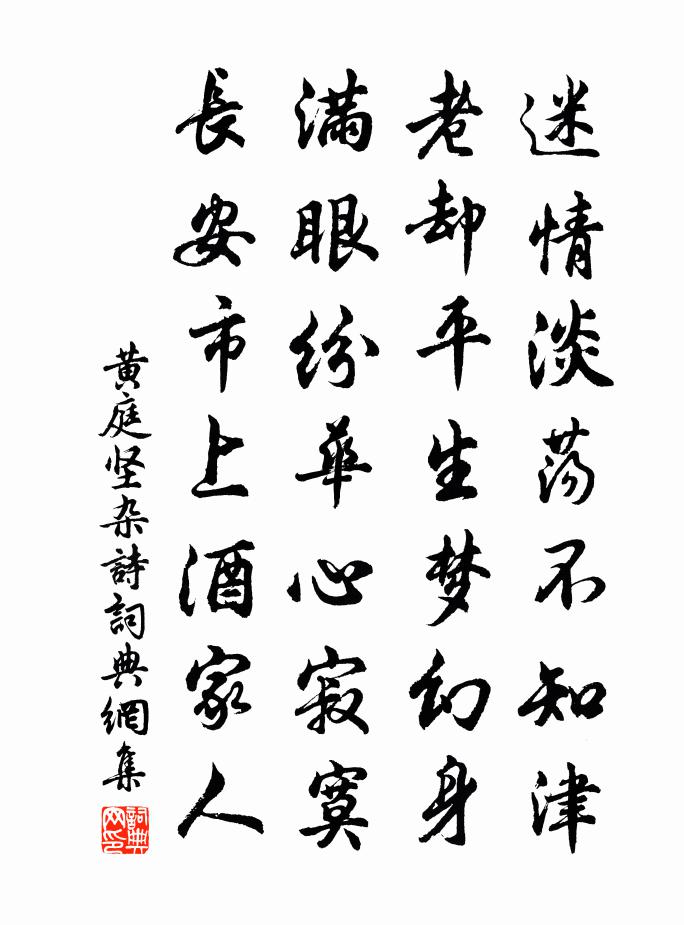 迷情淡荡不知津
老却平生梦幻身
满眼纷華心寂寞
長安市上酒家人
黄庭坚杂詩詞典網集
詞典網印